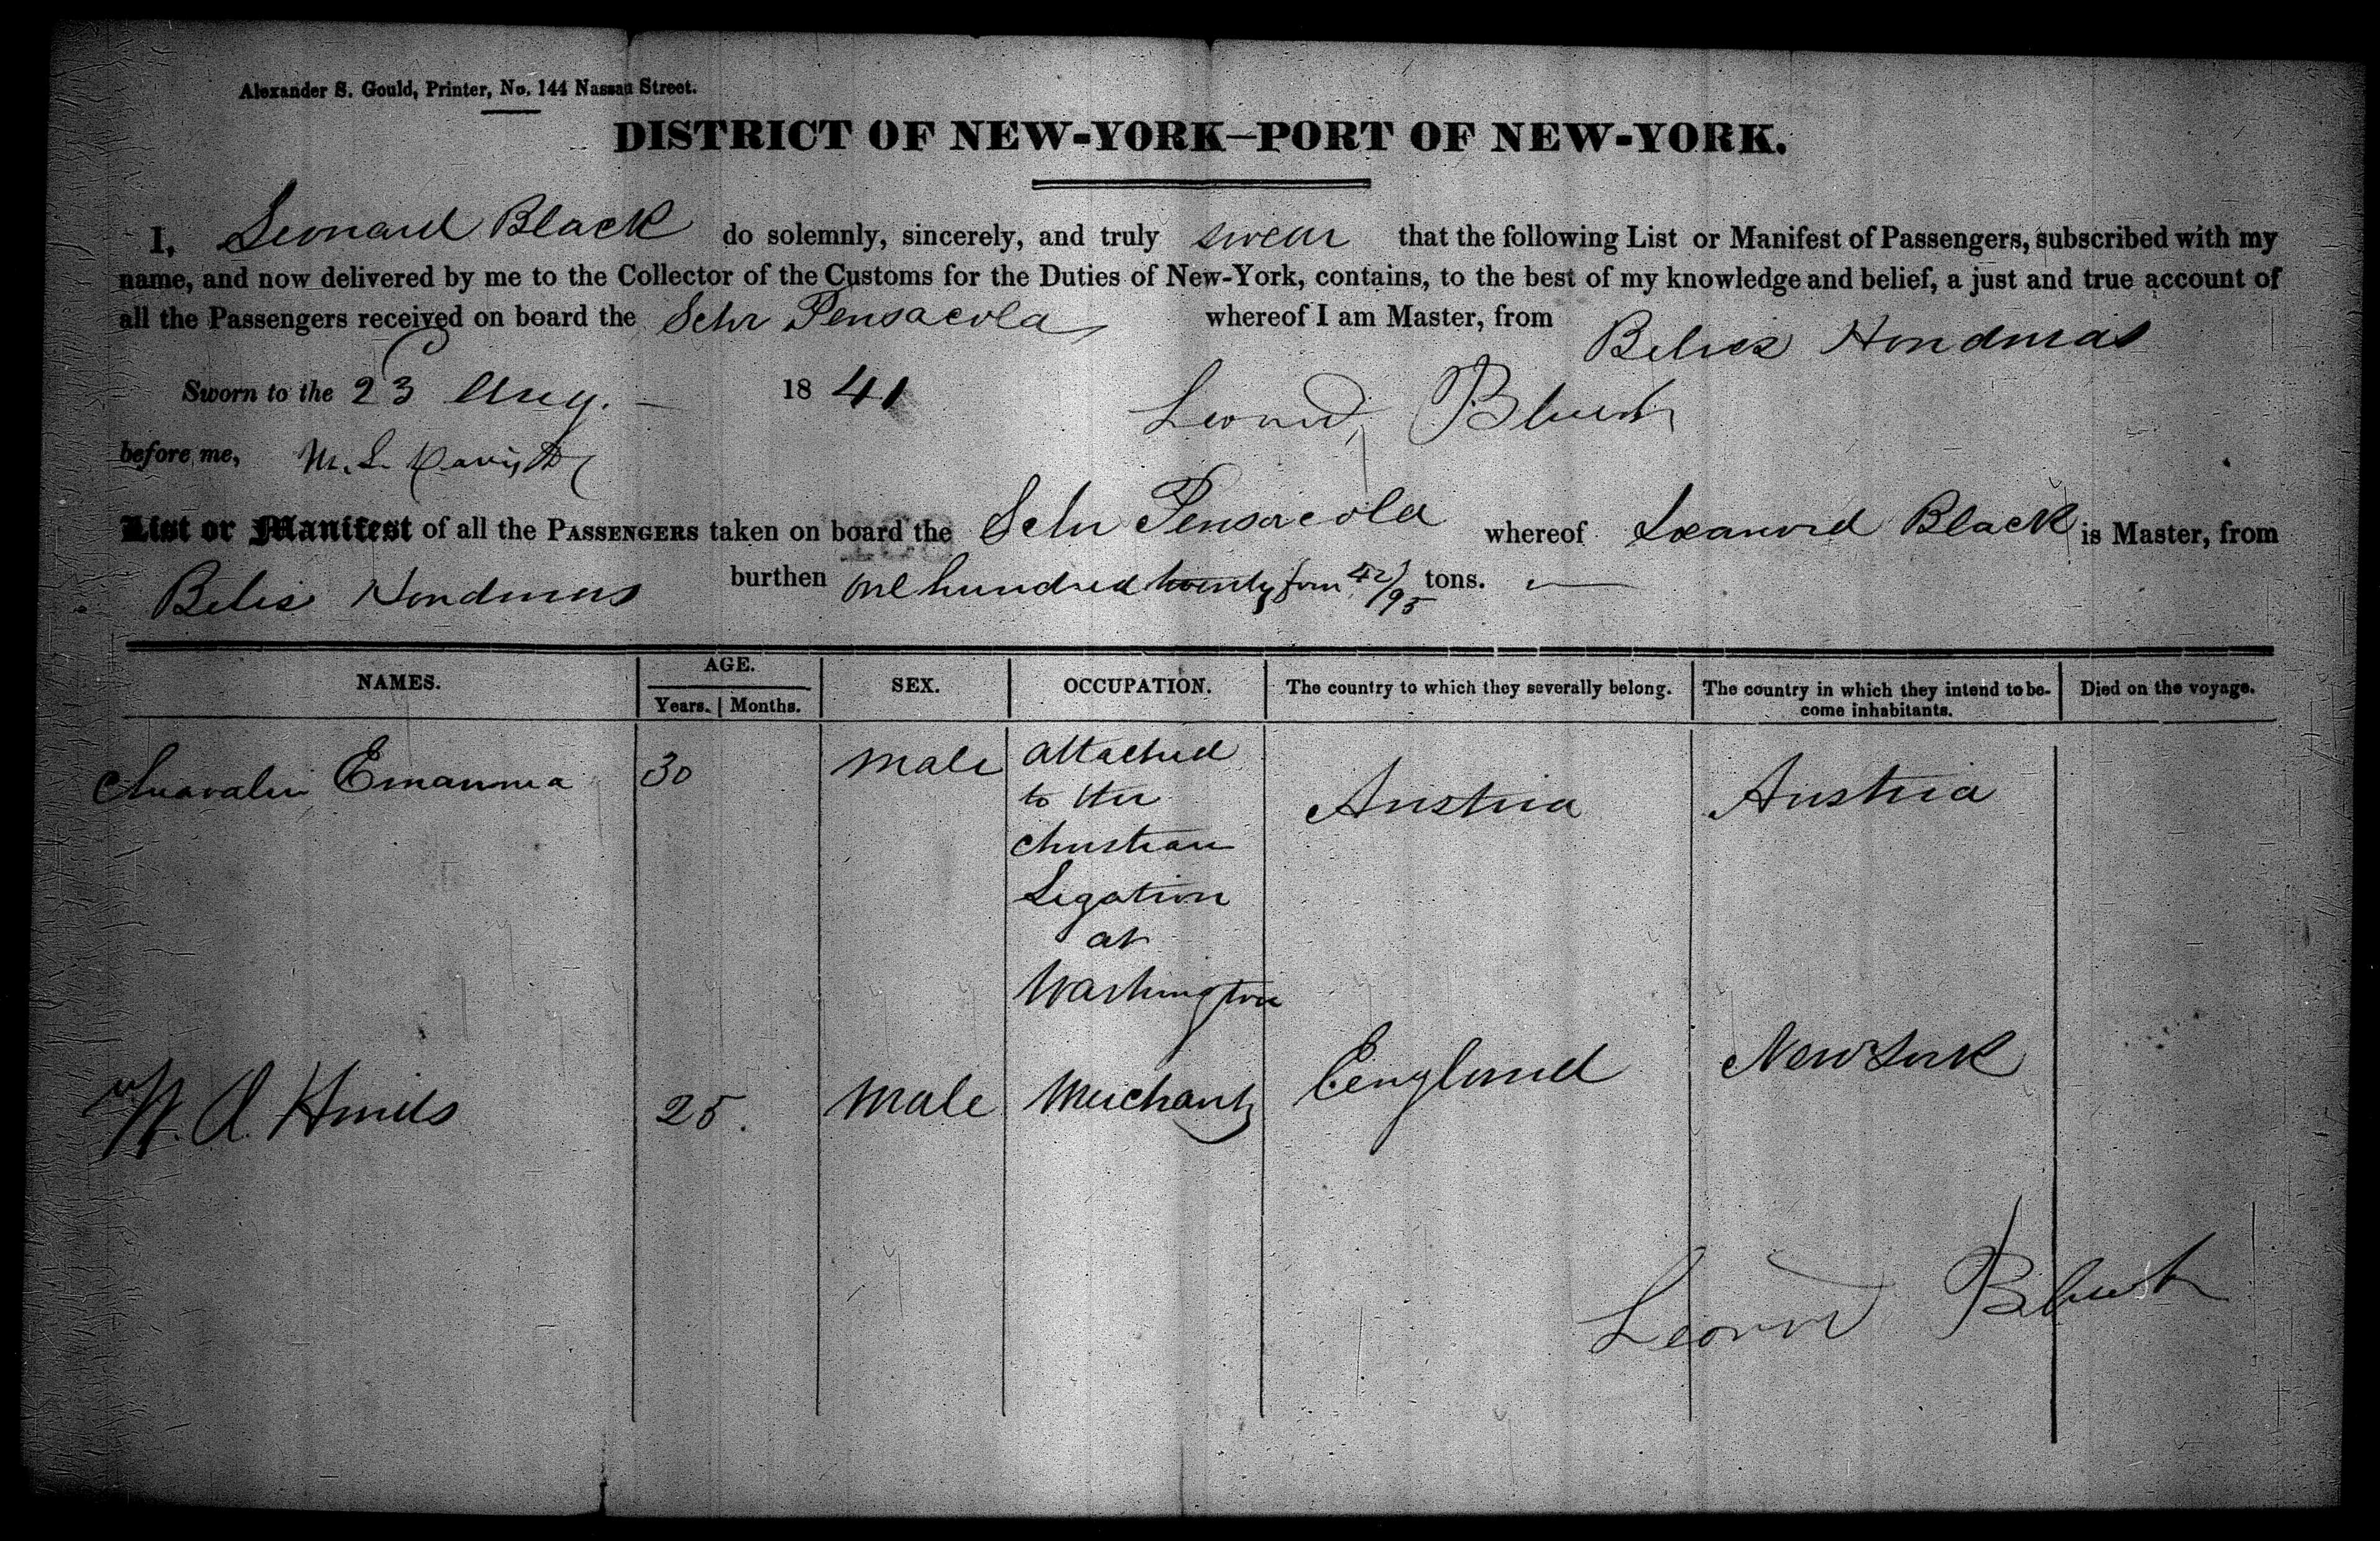 Alexander S. Gould, Printer, No. 144 Nassau Street.
DISTRICT OF NEW-YORK—PORT OF NEW-YORK.
I, Leonard Black do solemnly, sincerely, and truly swear that the following List or Manifest of Passengers, subscribed with my
name, and now delivered by me to the Collector of the Customs for the Duties of New-York, contains, to the best of my knowledge and belief, a just and true account of
all the Passengers received on board the Schr Pensacola whereof I am Master, from Belies Honduras
Sworn to the 23 Aug. 1841 Leonard Black
before me, M. L.
List or Manifest of all the PASSENGERS taken on board the Schr Pensacola whereof Leanord Black is Master, from
Belis Honduras burthen one hundred twenty four 42/95 tons.
NAMES. AGE. SEX. OCCUPATION. The country to which they severally belong. The country in which they intend to be-
come inhabitants. Died on the voyage.
Years. Months.
Emanuea 30 male attached
to the
Christian
Legation
at
Washington
Austria Austria
W. A. Hinds 25. male Merchant England New York
Leonard Black